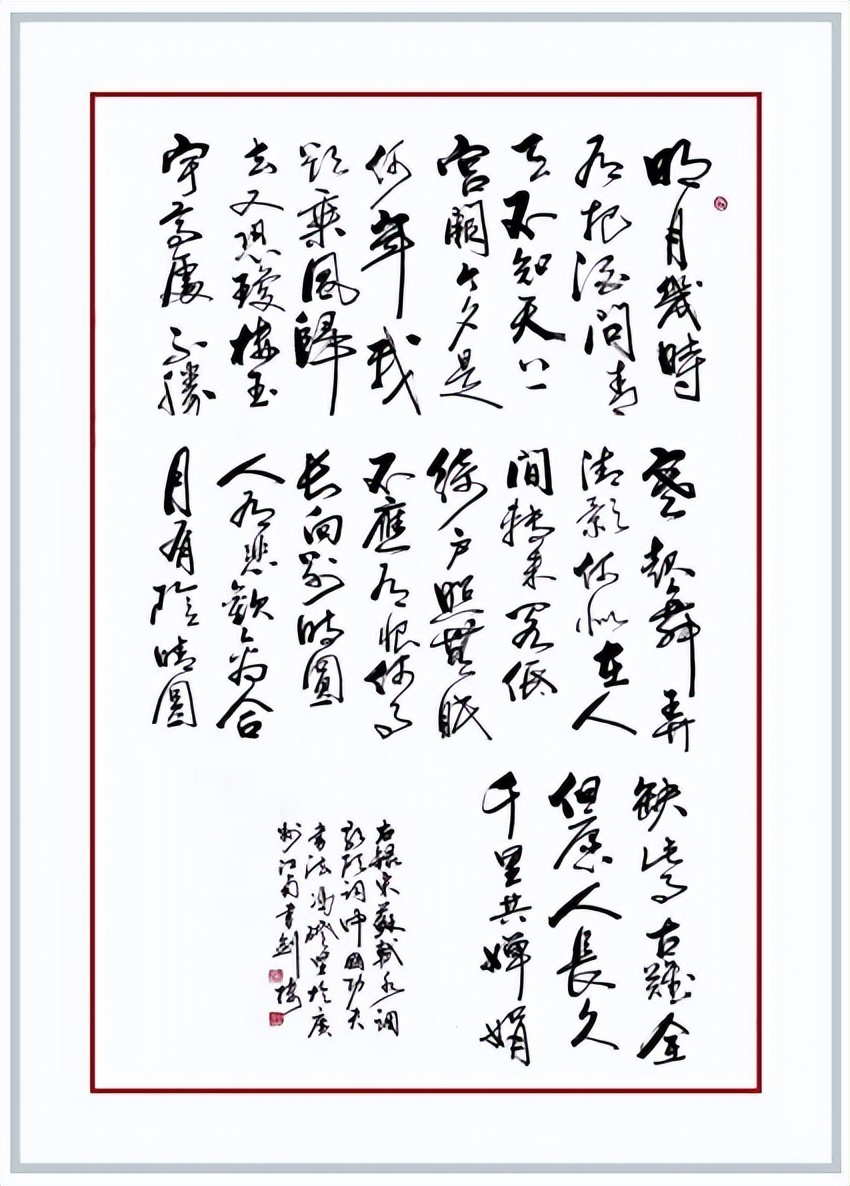 明月幾時
有把酒問青
天不知天上
宮闕今夕是
何年我
欲乘風歸
去又恐瓊樓玉
宇高處不勝
寒起舞弄
清影何似在人
間轉朱閣低
綺户照無眠
不應有恨何事
长向别時圓
人有悲歡離合
月有陰晴圓
缺此事古難全
但愿人長久
千里共嬋娟
右録宋蘇軾水調
歌頭詞中國功夫
書法馮於廣
州江南書劍樓